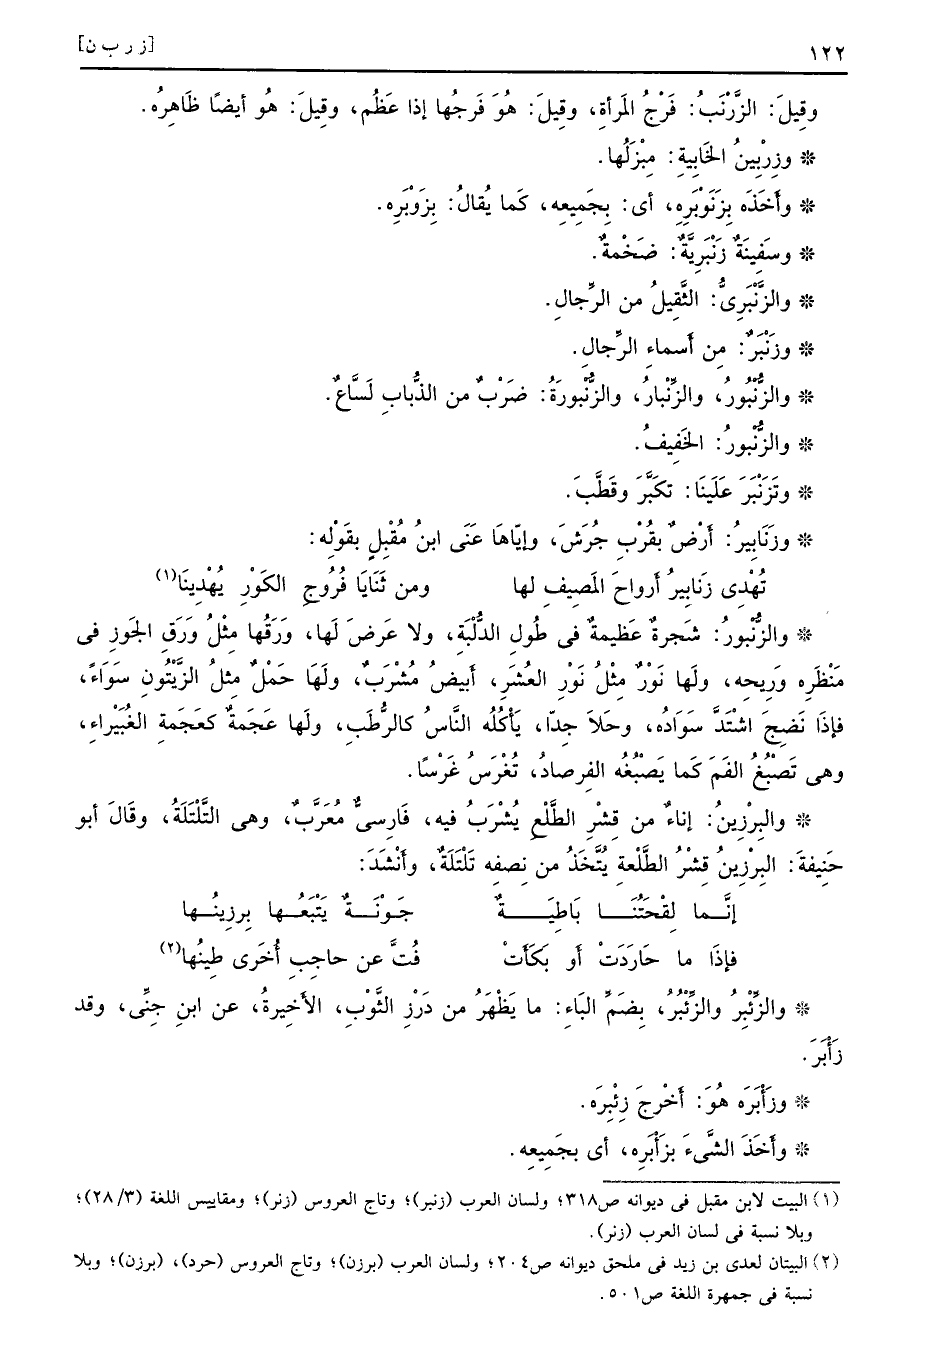 ١٢٢ [ز ر ب ن]
وقِيلَ: الزَّرْنَبُ: فَرْجُ المَرأةِ، وقِيلَ: هُوَ فَرجُها إذا عَظُم، وقِيلَ: هُو أيضًا ظَاهِرُه.
* وزِرْبِينُ الخَابِيةِ: مِبْزَلُها.
* وأَخَذَه بِزَنَوْبَرِه، أى: بِجَمِيعِه، كَما يُقالُ: بِزَوْبَرِه.
* وسَفِينَةٌ زَنْبَرِيَّةٌ: ضَخْمةٌ.
* والزَّنْبَرِىُّ: الثَّقِيلُ من الرِّجالِ.
* وزَنْبَرٌ: مِن أَسماءِ الرِّجالِ.
* والزُّنْبُورُ، والزِّنْبارُ، والزُّنْبورَةُ: ضَرْبٌ من الذُّبابِ لَسَّاعٌ.
* والزُّنْبورُ: الخَفِيفُ.
* وتَزَنْبَرَ عَلَينَا: تكَبَّرَ وقَطَّبَ.
* وزَنَابِيرُ: أَرْضٌ بقُرْبِ جُرَشَ، وإيّاهَا عَنَى ابنُ مُقْبِلٍ بقَولِه:
تُهْدِى زَنابِيرُ أرواحَ المَصِيفِ لها ومن ثَنَايَا فُرُوجِ الكَوْرِ يُهْدِينَا(١)
* والزُّنْبورُ: شَجرةٌ عَظِيمةٌ فى طُولِ الدُّلْبَةِ، ولا عَرضَ لَها، وَرَقُها مثْلُ وَرَقِ الجَوزِ فى
مَنْظَرِه وَرِيحِه، ولَها نَوْرٌ مثْلُ نَوْرِ العُشَرِ، أبيضُ مُشْرَبٌ، ولَهَا حَمْلٌ مثلُ الزَّيْتُونِ سَوَاءً،
فإذَا نَضِجَ اشْتَدَّ سَوَادُه، وحَلاَ جِدّا، يَأكُلُه النَّاسُ كالرُّطَبِ، ولَها عَجَمةٌ كعَجَمةِ الغُبَيْراءِ،
وهى تَصْبُغُ الفَمَ كَما يَصْبُغُه الفِرصادُ، تُغْرَسُ غَرْسًا.
* والبِرْزِينُ: إناءٌ من قِشْرِ الطَّلْعِ يُشْرَبُ فيه، فَارِسىٌّ مُعَرَّبٌ، وهى التَّلْتَلَةُ، وقَالَ أبو
حَنِيفةَ: البِرْزِينُ قِشْرُ الطَّلْعةِ يُتَّخَذُ من نصفِه تَلْتَلَةٌ، وأَنْشَدَ:
إنَّـما لِقْحَتُنَـا بَاطِيَـةٌ جَـوْنَـةٌ يَتْبَعُـها بِرزِينُـها
فإذَا ما حَارَدَتْ أو بَكَأَتْ فُتَّ عن حاجِبِ أُخرَى طِينُها(٢)
* والزِّئْبِرُ والزِّئْبُرُ، بِضَمِّ البَاءِ: ما يَظْهَرُ من دَرْزِ الثَّوْبِ، الأَخيرةُ، عن ابنِ جِنِّى، وقد
زَأْبَرَ.
* وزَأْبَرَه هُوَ: أَخْرجَ زِئبِرَه.
* وأَخَذَ الشَّىءَ بزَأْبَرِه، أى بجَمِيعِه.
(١) البيت لابن مقبل فى ديوانه ص٣١٨؛ ولسان العرب (زنبر)؛ وتاج العروس (زنر)؛ ومقاييس اللغة (٢٨/٣)؛
وبلا نسبة فى لسان العرب (زنر).
(٢) البيتان لعدى بن زيد فى ملحق ديوانه ص٢٠٤؛ ولسان العرب (برزن)؛ وتاج العروس (حرد)، (برزن)؛ وبلا
نسبة فى جمهرة اللغة ص٥٠١.